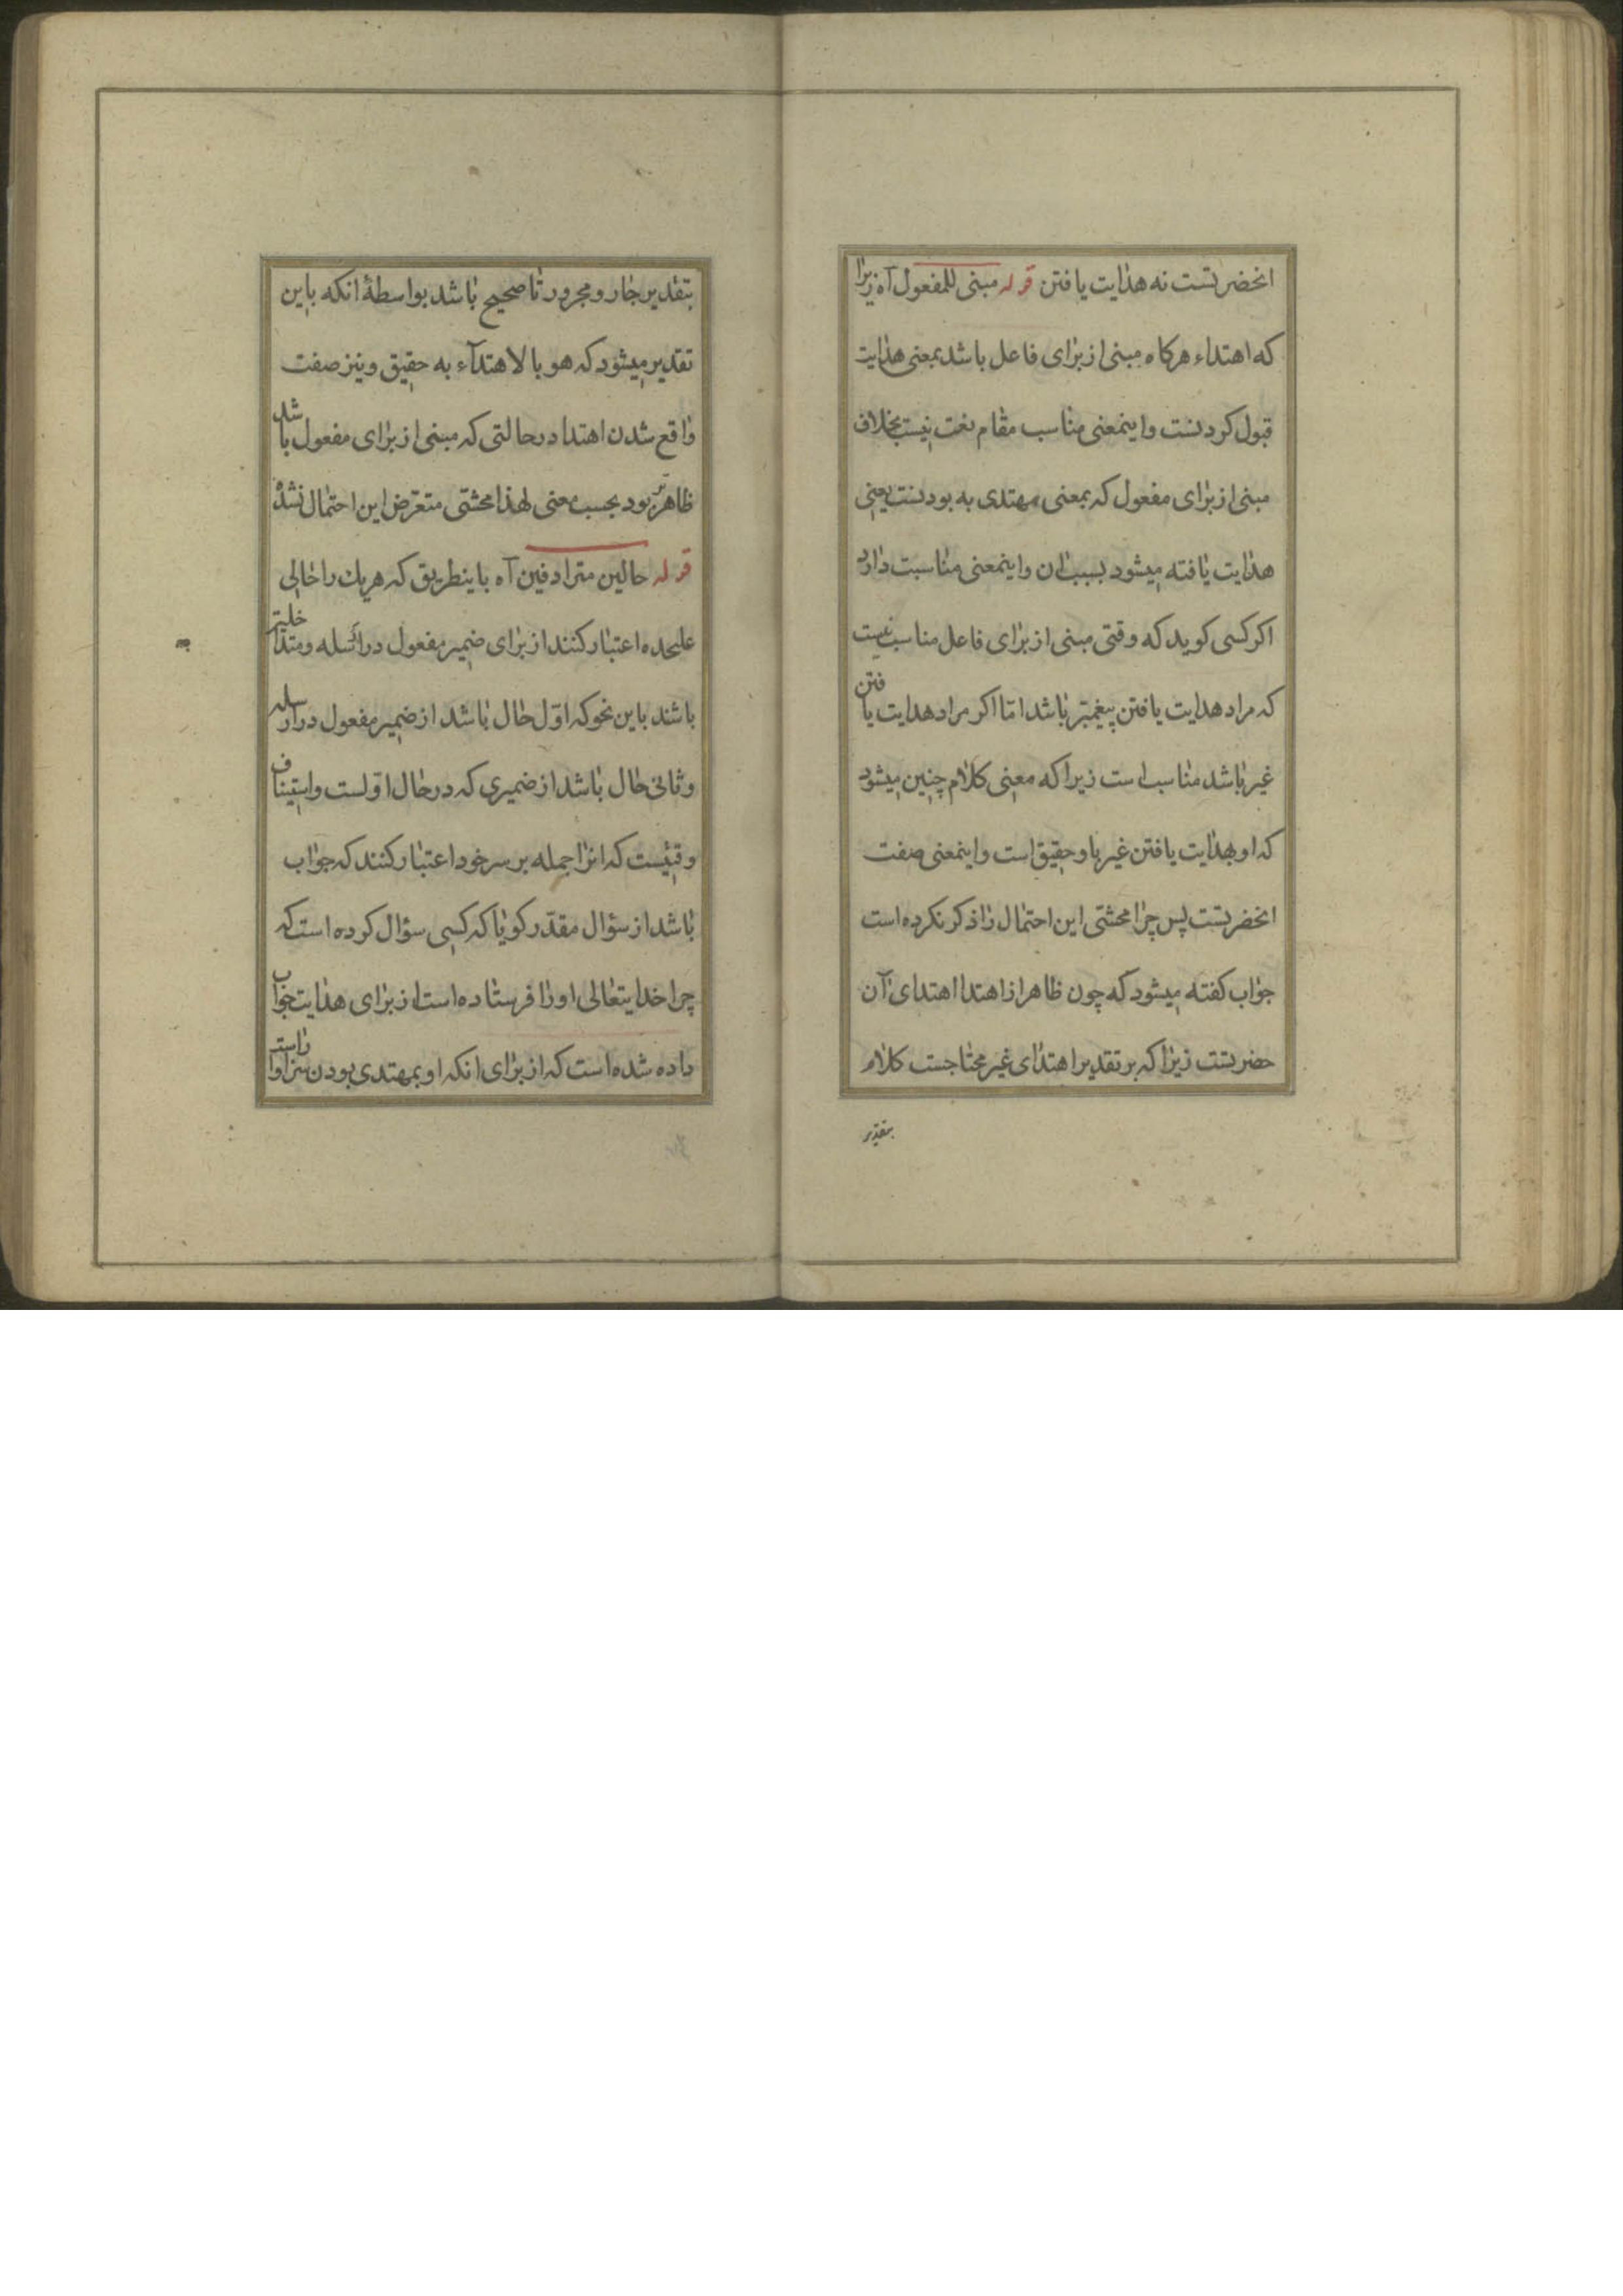 انحضرتست نه هدایت یافتن قوله مبنی للمفعول آه زیرا
که اهتداء هرکاه مبنی از برای فاعل باشد بمعنی هدایت
قبول کردنست واینمعنی مناسب مقام نعت نیست بخلاف
مبنی از برای مفعول که بمعنی مهتدی به بودنست یعنی
هدایت یافته میشود بسبب ان واینمعنی مناسبت دارد
اکر کسی کوید که وقتی مبنی از برای فاعل مناسب نیست
که مراد هدایت یافتن پیغمبر باشد امّا اکر مراد هدایت یافتن
غیر باشد مناسب است زیرا که معنی کلام چنین میشود
که او بهدایت یافتن غیر باو حقیق است واینمعنی صفت
انحضرتست پس چرا محشّی این احتمال را ذکر نکرده است
جواب کفته میشود که چون ظاهر از اهتدا اهتدای آن
حضرتست زیرا که بر تقدیر اهتدای غیر محتاجست کلام
بتقدیر
بتقدیر جار و مجرور تا صحیح باشد بواسطهٔ انکه باین
تقدیر میشود که هو بالاهتدآء به حقیق ونیز صفت
واقع شدن اهتدا در حالتی که مبنی از برای مفعول باشد
ظاهرتر بود بحسب معنی لهذا محشّی متعرّض این احتمال نشده
قوله حالین مترادفین آه باینطریق که هریك را حالی
علیحده اعتبار کنند از برای ضمیر مفعول در ارسله ومتداخلین
باشند باین نحو که اوّل حال باشد از ضمیر مفعول در ارسله
وثانی حال باشد از ضمیری که در حال اوّلست واستیناف
وقتیست که انرا جمله بر سر خود اعتبار کنند که جواب
باشد از سؤال مقدّر کویا که کسی سؤال کرده است که
چرا خدایتعالی اورا فرستاده است از برای هدایت جواب
داده شده است که از برای انکه او بمهتدی بودن سزاوار است